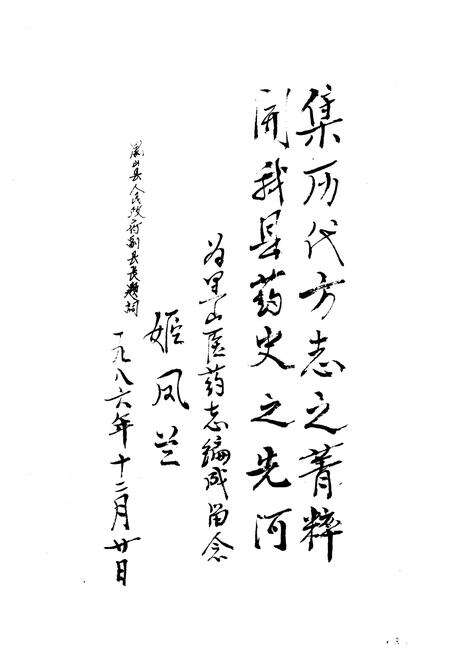 集历代方志之菁粹
开我县药史之先河
为黑山医药志编成留念
姬凤兰
黑山县人民政府副县长题词
一九八六年十二月廿日
3